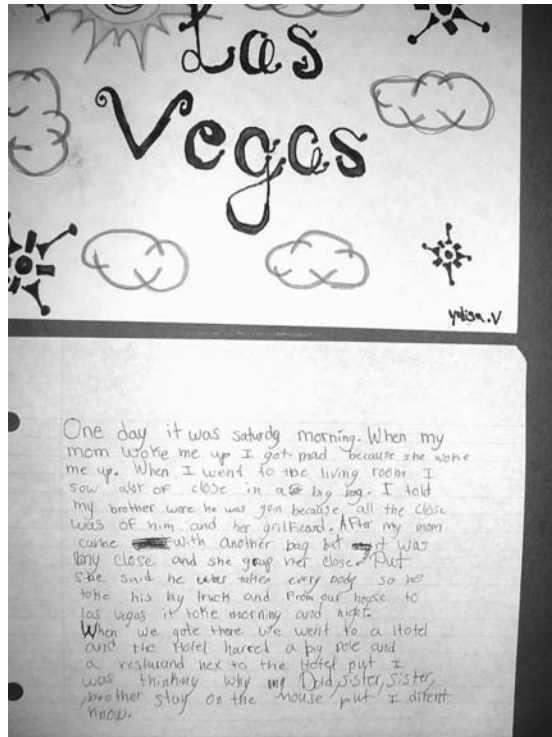 Las
Vegas
yulisa.V
One day it was saturdg morning. When my
mom woke me up I got mad because she woke
me up. When I went to the living room I
sow alot of close in a big bag. I told
my brother were he was goin because all the close
was of him and her grilfeard. After my mom
came with another bag but it was
my close and she grap her close. Put
she said he was taken every body so he
toke his by truck and from our house to
las vegas it toke morning and nickt.
When we gote there we went to a Hotel
and the Hotel harred a big pole and
a resturand nex to the Hotel put I
was thinking why my Dad, sister, sister,
brother stay on the house put I dirent
know.